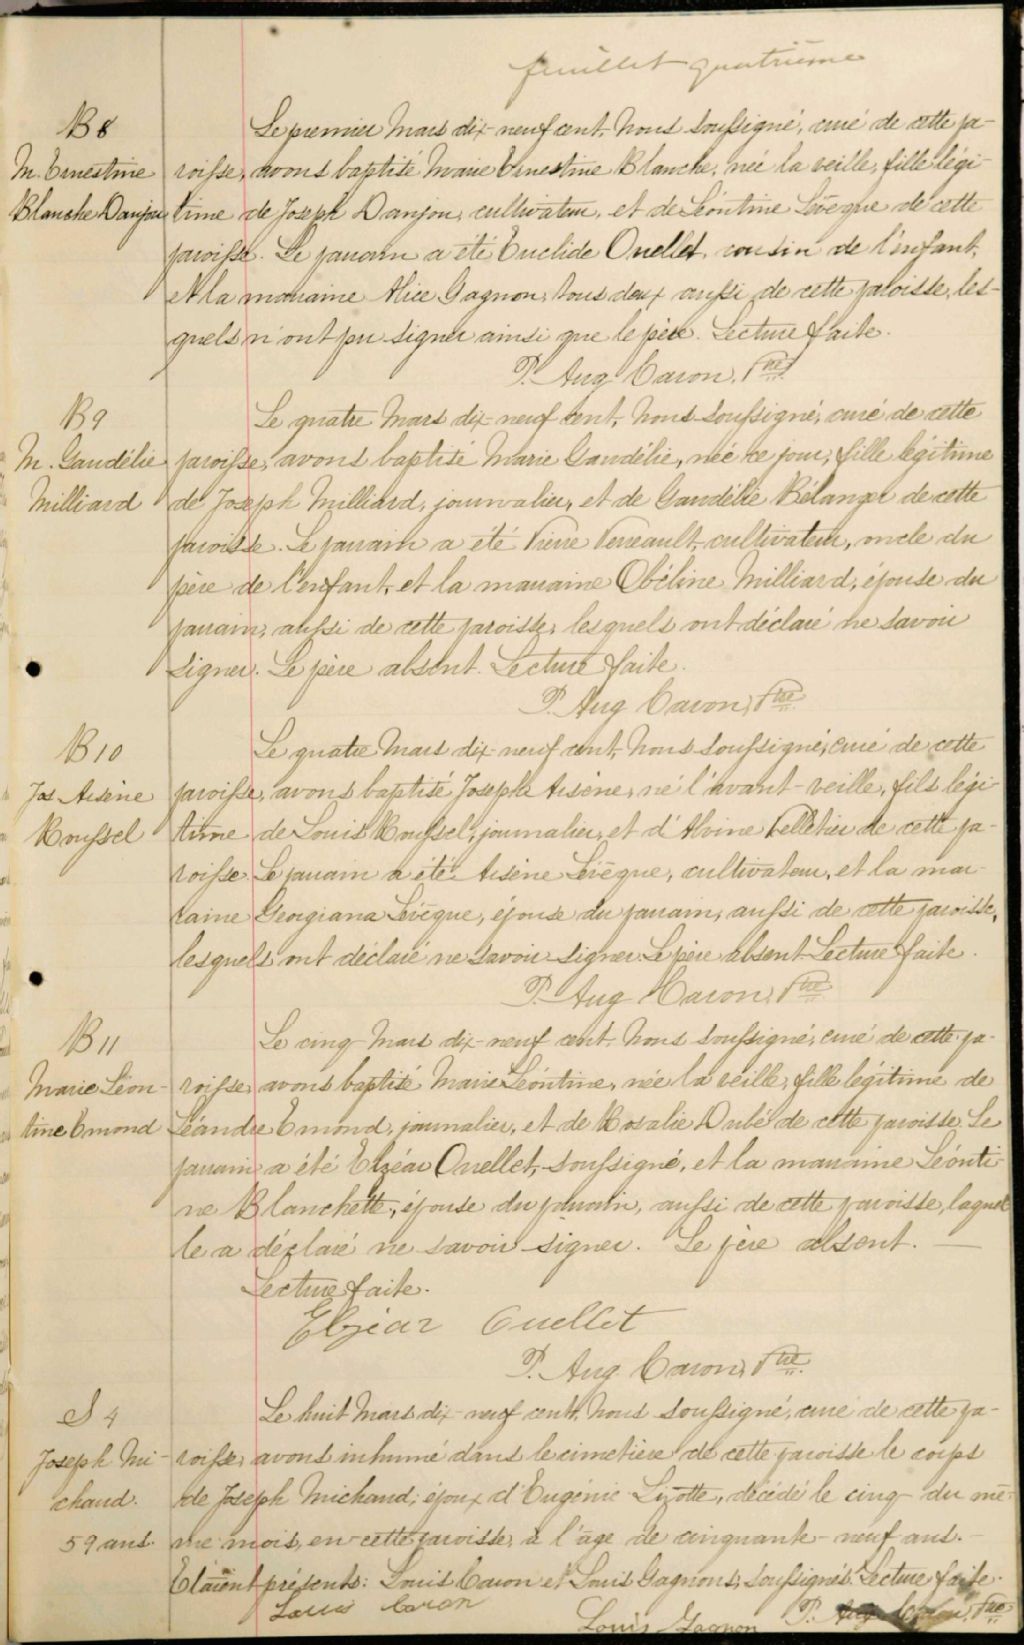 feuillet quatrième
B 8
M. Ernestine
Blanche Danjou
Le premier Mars dix-neuf cent, Nous soussigné, curé de cette pa-
roisse, avons baptisé Marie Ernestine Blanche, née la veille, fille légi-
time de Joseph Danjou, cultivateur, et de Léontine Lévêque de cette
paroisse. Le parrain a été Euclide Ouellet, cousin de l'enfant,
et la marraine Alice Gagnon, tous deux aussi de cette paroisse, les-
quels n'ont pu signer ainsi que le père. Lecture faite.
P. Aug Caron, Ptre
B 9
M. Gaudélie
Milliard
Le quatre Mars dix-neuf cent, Nous soussigné, curé de cette
paroisse, avons baptisé Marie Gaudélie, née ce jour, fille légitime
de Joseph Milliard, journalier, et de Gaudélie Bélanger de cette
paroisse. Le parrain a été Pierre Perreault, cultivateur, oncle du
père de l'enfant, et la marraine Obéline Milliard, épouse du
parrain, aussi de cette paroisse, lesquels ont déclaré ne savoir
signer. Le père absent. Lecture faite.
P. Aug Caron, Ptre
B 10
Jos Arsène
Roussel
Le quatre Mars dix-neuf cent, Nous soussigné, curé de cette
paroisse, avons baptisé Joseph Arsène, né l'avant-veille, fils légi-
time de Louis Roussel, journalier, et d'Alvine Pelletier de cette pa-
roisse. Le parrain a été Arsène Lévêque, cultivateur, et la mar-
raine Georgiana Lévêque, épouse du parrain, aussi de cette paroisse,
lesquels ont déclaré ne savoir signer. Le père absent. Lecture faite.
P. Aug Caron, Ptre
B 11
Marie Léon-
tine Emond
Le cinq Mars dix-neuf cent, Nous soussigné, curé de cette pa-
roisse, avons baptisé Marie Léontine, née la veille, fille légitime de
Léandre Emond, journalier, et de Rosalie Dubé de cette paroisse. Le
parrain a été Elzéar Ouellet, soussigné, et la marraine Léonti-
ne Blanchette, épouse du parrain, aussi de cette paroisse, laquel-
le a déclaré ne savoir signer. Le père absent.
Lecture faite.
Elzéar Ouellet
P. Aug Caron, Ptre
S 4
Joseph Mi-
chaud.
59 ans.
Le huit Mars dix-neuf cent, Nous soussigné, curé de cette pa-
roisse, avons inhumé dans le cimetière de cette paroisse le corps
de Joseph Michaud, époux d'Eugénie Lizotte, décédé le cinq du mê-
me mois, en cette paroisse, à l'âge de cinquante-neuf ans.
Etaient présents: Louis Caron et Louis Gagnon, soussignés. Lecture faite.
Louis Caron
Louis Gagnon P. Aug Caron, Ptre